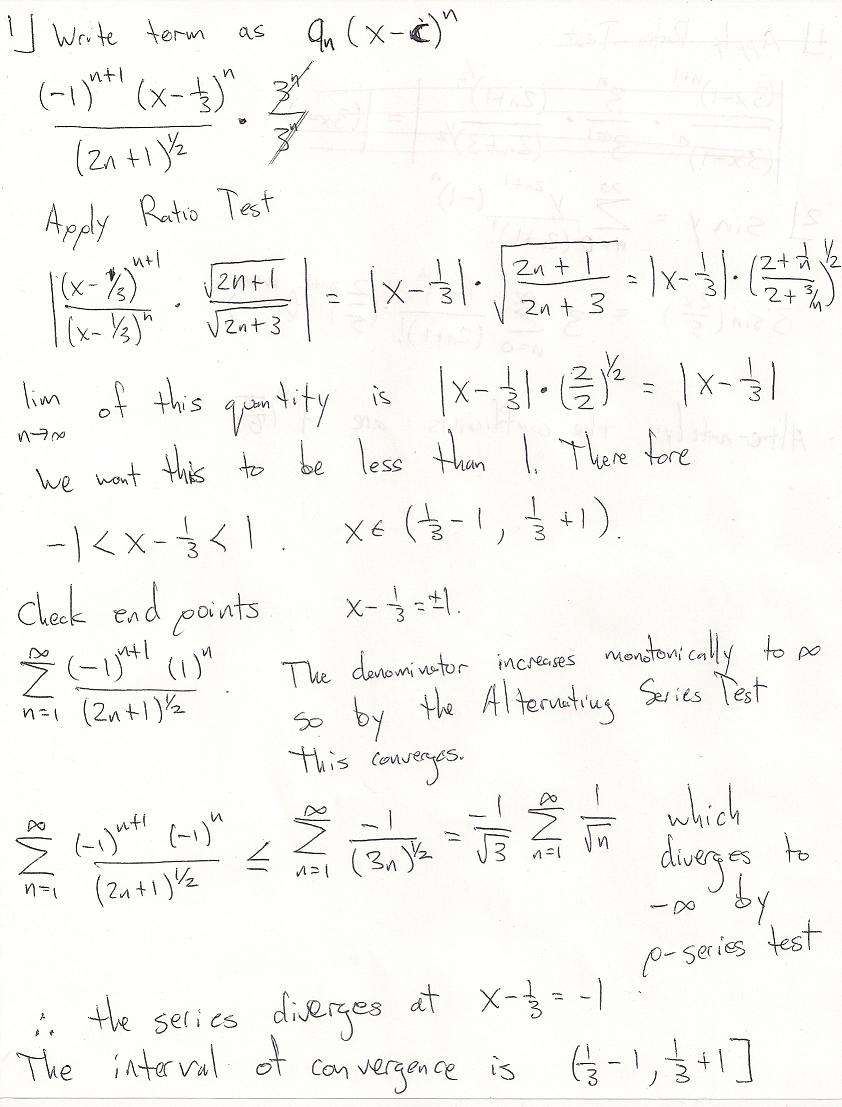 1] Write term as aₙ (x-c)ⁿ
(-1)ⁿ⁺¹ (x-1/3)ⁿ / (2n+1)^½ · 3ⁿ/3ⁿ
Apply Ratio Test
|(x-1/3)ⁿ⁺¹/(x-1/3)ⁿ · √(2n+1)/√(2n+3)| = |x-1/3| · √((2n+1)/(2n+3)) = |x-1/3| · ((2+1/n)/(2+3/n))^½
lim n→∞ of this quantity is |x-1/3| · (2/2)^½ = |x-1/3|
we want this to be less than 1. Therefore
-1 < x-1/3 < 1. x ∈ (1/3-1, 1/3+1).
Check end points x-1/3 = ±1.
∑_{n=1}^∞ (-1)ⁿ⁺¹ (1)ⁿ / (2n+1)^½. The denominator increases monotonically to ∞
so by the Alternating Series Test
this converges.
∑_{n=1}^∞ (-1)ⁿ⁺¹ (-1)ⁿ / (2n+1)^½ ≤ ∑_{n=1}^∞ -1/(3n)^½ = -1/√3 ∑_{n=1}^∞ 1/√n which
diverges to
-∞ by
p-series test
∴ the series diverges at x-1/3 = -1
The interval of convergence is (1/3-1, 1/3+1]